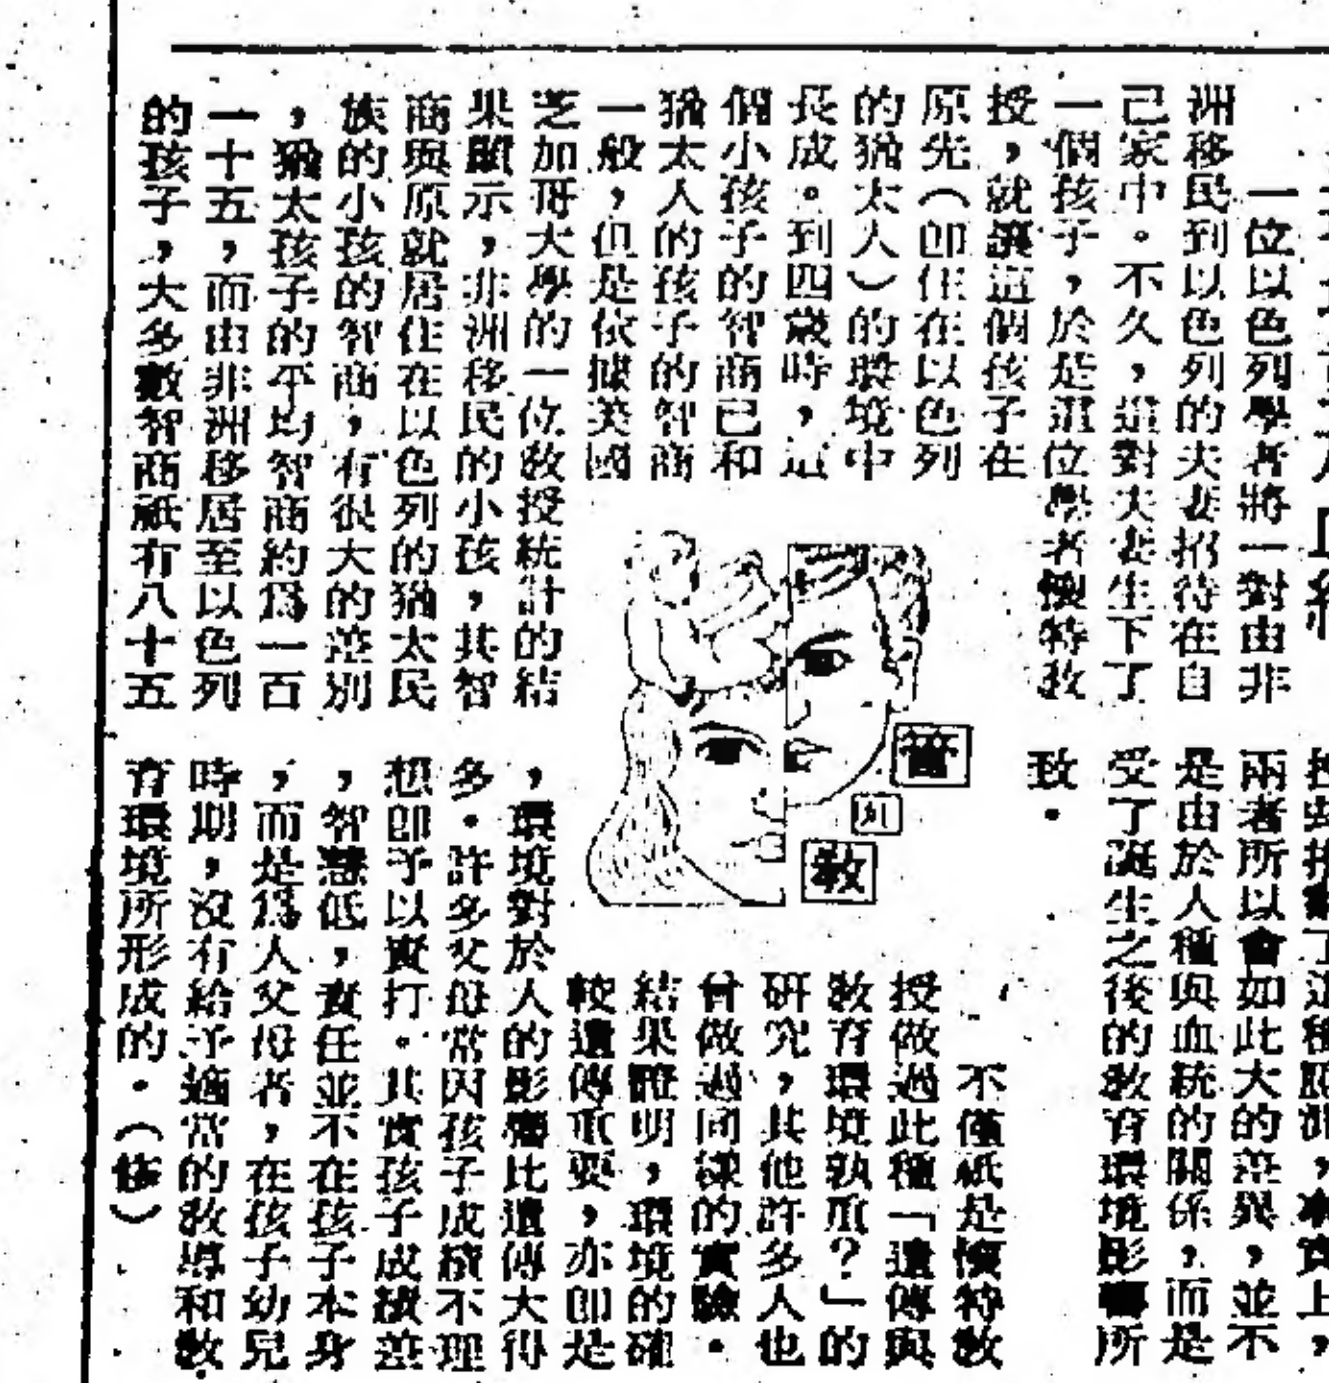 一位以色列學者將一對由非
洲移民到以色列的夫妻招待在自
己家中。不久，這對夫妻生下了
一個孩子，於是這位學者懷特教
授，就讓這個孩子在
原先（卽住在以色列
的猶太人）的環境中
長成。到四歲時，這
個小孩子的智商已和
猶太人的孩子的智商
一般，但是依據美國
芝加哥大學的一位敎授統計的結
果顯示，非洲移民的小孩，其智
商與原就居住在以色列的猶太民
族的小孩的智商，有很大的差別
，猶太孩子的平均智商約爲一百
一十五，而由非洲移居至以色列
的孩子，大多數智商祇有八十五
，事實上，
兩者所以會如此大的差異，並不
是由於人種與血統的關係，而是
受了誕生之後的敎育環境影響所
致。
不僅祇是懷特敎
授做過此種「遺傳與
敎育環境孰重？」的
研究，其他許多人也
曾做過同樣的實驗。
結果證明，環境的確
較遺傳重要，亦卽是
，環境對於人的影響比遺傳大得
多。許多父母常因孩子成績不理
想卽予以責打。其實孩子成績差
，智慧低，責任並不在孩子本身
，而是爲人父母者，在孩子幼兒
時期，沒有給予適當的敎導和敎
育環境所形成的。（恢）
管
敎